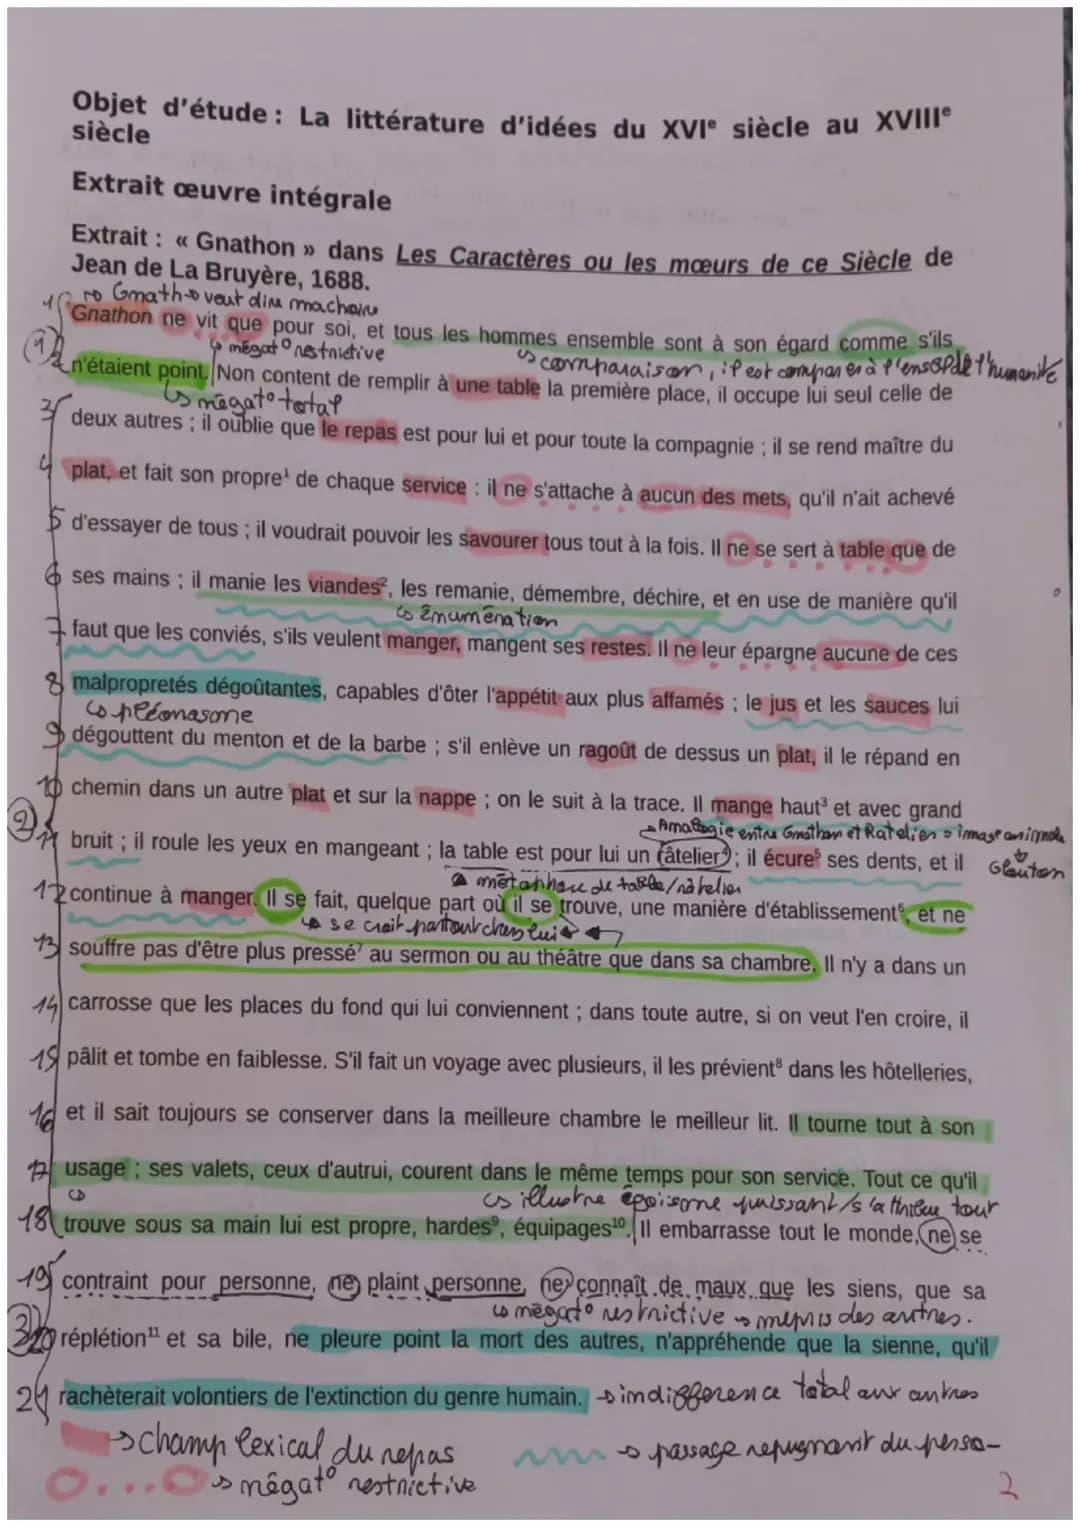 Objet d'étude : La littérature d'idées du XVIe siècle au XVIIIe
siècle
Extrait œuvre intégrale
Extrait : « Gnathon » dans Les Caractères ou les mœurs de ce Siècle de
Jean de La Bruyère, 1688.
Gnath → veut dire machoire
1 Gnathon ne vit que pour soi, et tous les hommes ensemble sont à son égard comme s'ils
↳ négat° restrictive
↳ comparaison, il est comparer à l'ensble de l'humanité
(1) 2 n'étaient point. Non content de remplir à une table la première place, il occupe lui seul celle de
↳ négat° total
3 deux autres ; il oublie que le repas est pour lui et pour toute la compagnie ; il se rend maître du
4 plat, et fait son propre¹ de chaque service : il ne s'attache à aucun des mets, qu'il n'ait achevé
5 d'essayer de tous ; il voudrait pouvoir les savourer tous tout à la fois. Il ne se sert à table que de
6 ses mains ; il manie les viandes², les remanie, démembre, déchire, et en use de manière qu'il
↳ Énumération
7 faut que les conviés, s'ils veulent manger, mangent ses restes. Il ne leur épargne aucune de ces
8 malpropretés dégoûtantes, capables d'ôter l'appétit aux plus affamés ; le jus et les sauces lui
↳ pléonasme
9 dégouttent du menton et de la barbe ; s'il enlève un ragoût de dessus un plat, il le répand en
10 chemin dans un autre plat et sur la nappe ; on le suit à la trace. Il mange haut³ et avec grand
Analogie entre Gnathon et Ratelier → image animale
↓
Glouton
(2) 11 bruit ; il roule les yeux en mangeant ; la table est pour lui un râtelier⁴ ; il écure⁵ ses dents, et il
métaphore de table/râtelier
12 continue à manger. Il se fait, quelque part où il se trouve, une manière d'établissement⁶, et ne
↳ se croit partout chez lui
13 souffre pas d'être plus pressé⁷ au sermon ou au théâtre que dans sa chambre. Il n'y a dans un
14 carrosse que les places du fond qui lui conviennent ; dans toute autre, si on veut l'en croire, il
15 pâlit et tombe en faiblesse. S'il fait un voyage avec plusieurs, il les prévient⁸ dans les hôtelleries,
16 et il sait toujours se conserver dans la meilleure chambre le meilleur lit. Il tourne tout à son
17 usage ; ses valets, ceux d'autrui, courent dans le même temps pour son service. Tout ce qu'il
↳ illustre égoisme puissant/s'attribue tout
18 trouve sous sa main lui est propre, hardes⁹, équipages¹⁰. Il embarrasse tout le monde, ne se
19 contraint pour personne, ne plaint personne, ne connaît de maux que les siens, que sa
↳ négat° restrictive → mépris des autres.
(3) 20 réplétion¹¹ et sa bile, ne pleure point la mort des autres, n'appréhende que la sienne, qu'il
21 rachèterait volontiers de l'extinction du genre humain. → indifférence total aux autres
→ champ lexical du repas
→ passage repugnant du perso-
→ négat° restrictive
2